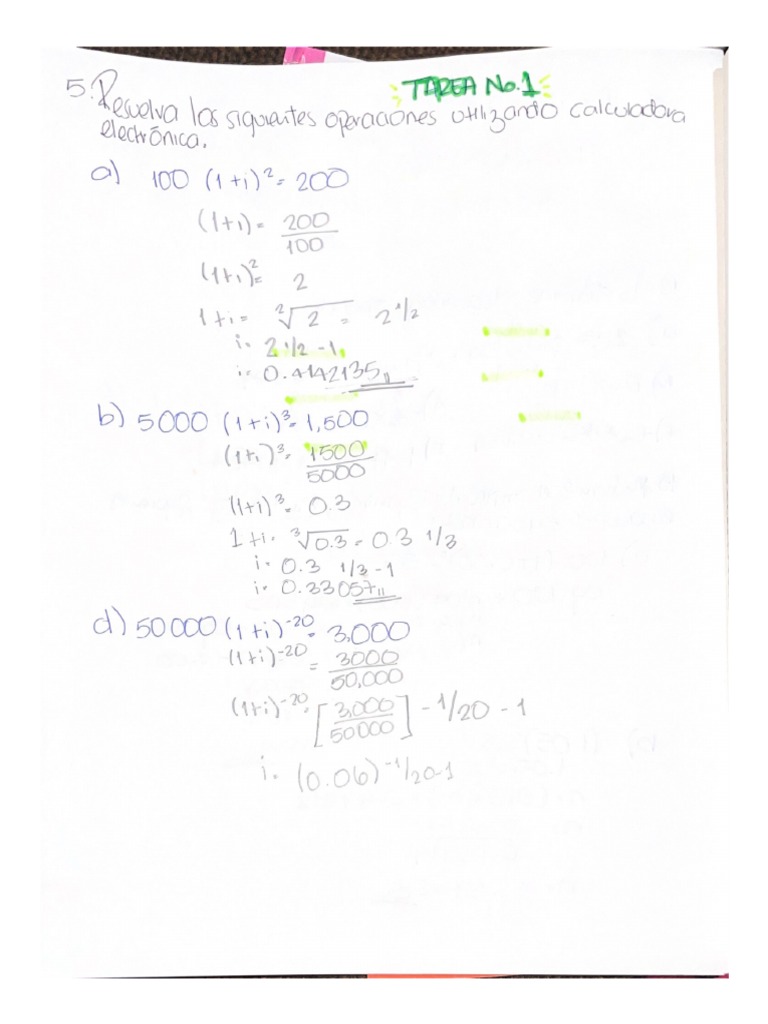 TAREA No.1
5. Resuelva las siguientes operaciones utilizando calculadora
electrónica.
a) 100 (1+i)² = 200
(1+i) = 200/100
(1+i)² = 2
1+i = ²√2 = 2 1/2
i = 2 1/2 - 1
i = 0.4142135
b) 5000 (1+i)³ = 1,500
(1+i)³ = 1500/5000
(1+i)³ = 0.3
1+i = ³√0.3 = 0.3 1/3
i = 0.3 1/3 - 1
i = 0.33057
d) 50000 (1+i)⁻²⁰ = 3,000
(1+i)⁻²⁰ = 3000/50,000
(1+i)⁻²⁰ = [3,000/50000] - 1/20 - 1
i = (0.06)⁻¹/20-1